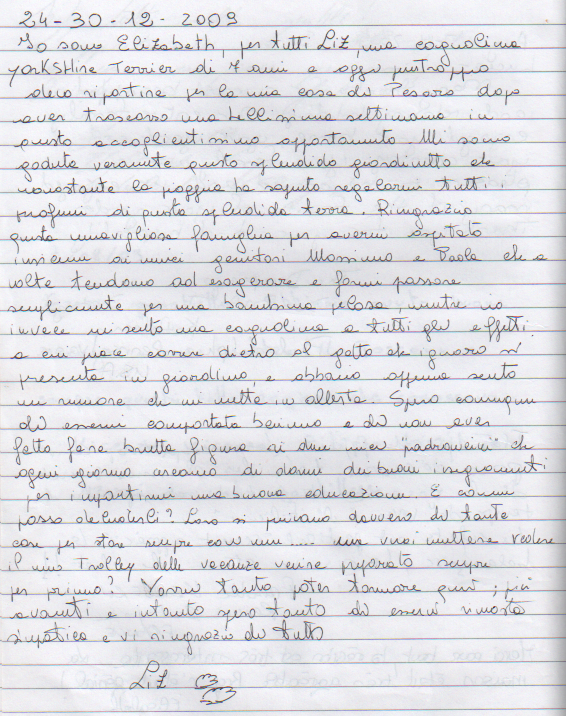 24-30-12-2009
Io sono Elizabeth, per tutti Liz, una cagnolina
yorkshire Terrier di 7 anni e oggi purtroppo
devo ripartire per la mia casa di Pesaro dopo
aver trascorso una bellissima settimana in
questo accoglientissimo appartamento. Mi sono
goduta veramente questo splendido giardinetto che
nonostante la pioggia ha saputo regalarmi tutti i
profumi di questa splendida terra. Ringrazio
questa meravigliosa famiglia per avermi ospitato
insieme ai miei genitori Massimo e Paola che a
volte tendono ad esagerare e farmi passare
semplicemente per una bambina pelosa, mentre io
invece mi sento una cagnolina a tutti gli effetti
a cui piace correre dietro al gatto che ignaro si
presenta in giardino, e abbaio appena sento
un rumore che mi mette in allerta. Spero comunque
di essermi comportata benino e di non aver
fatto fare brutta figura ai due miei "padroncini" che
ogni giorno cercano di darmi dei buoni insegnamenti
per impartirmi una buona educazione. E come
posso deluderli? Loro si privano davvero di tante
cose per stare sempre con me .... ma vuoi mettere vedere
il mio Trolley delle vacanze venire preparato sempre
per primo? Vorrei tanto poter tornare qui, più
avanti e intanto spero tanto di esservi rimasta
simpatica e vi ringrazio di tutto
Liz